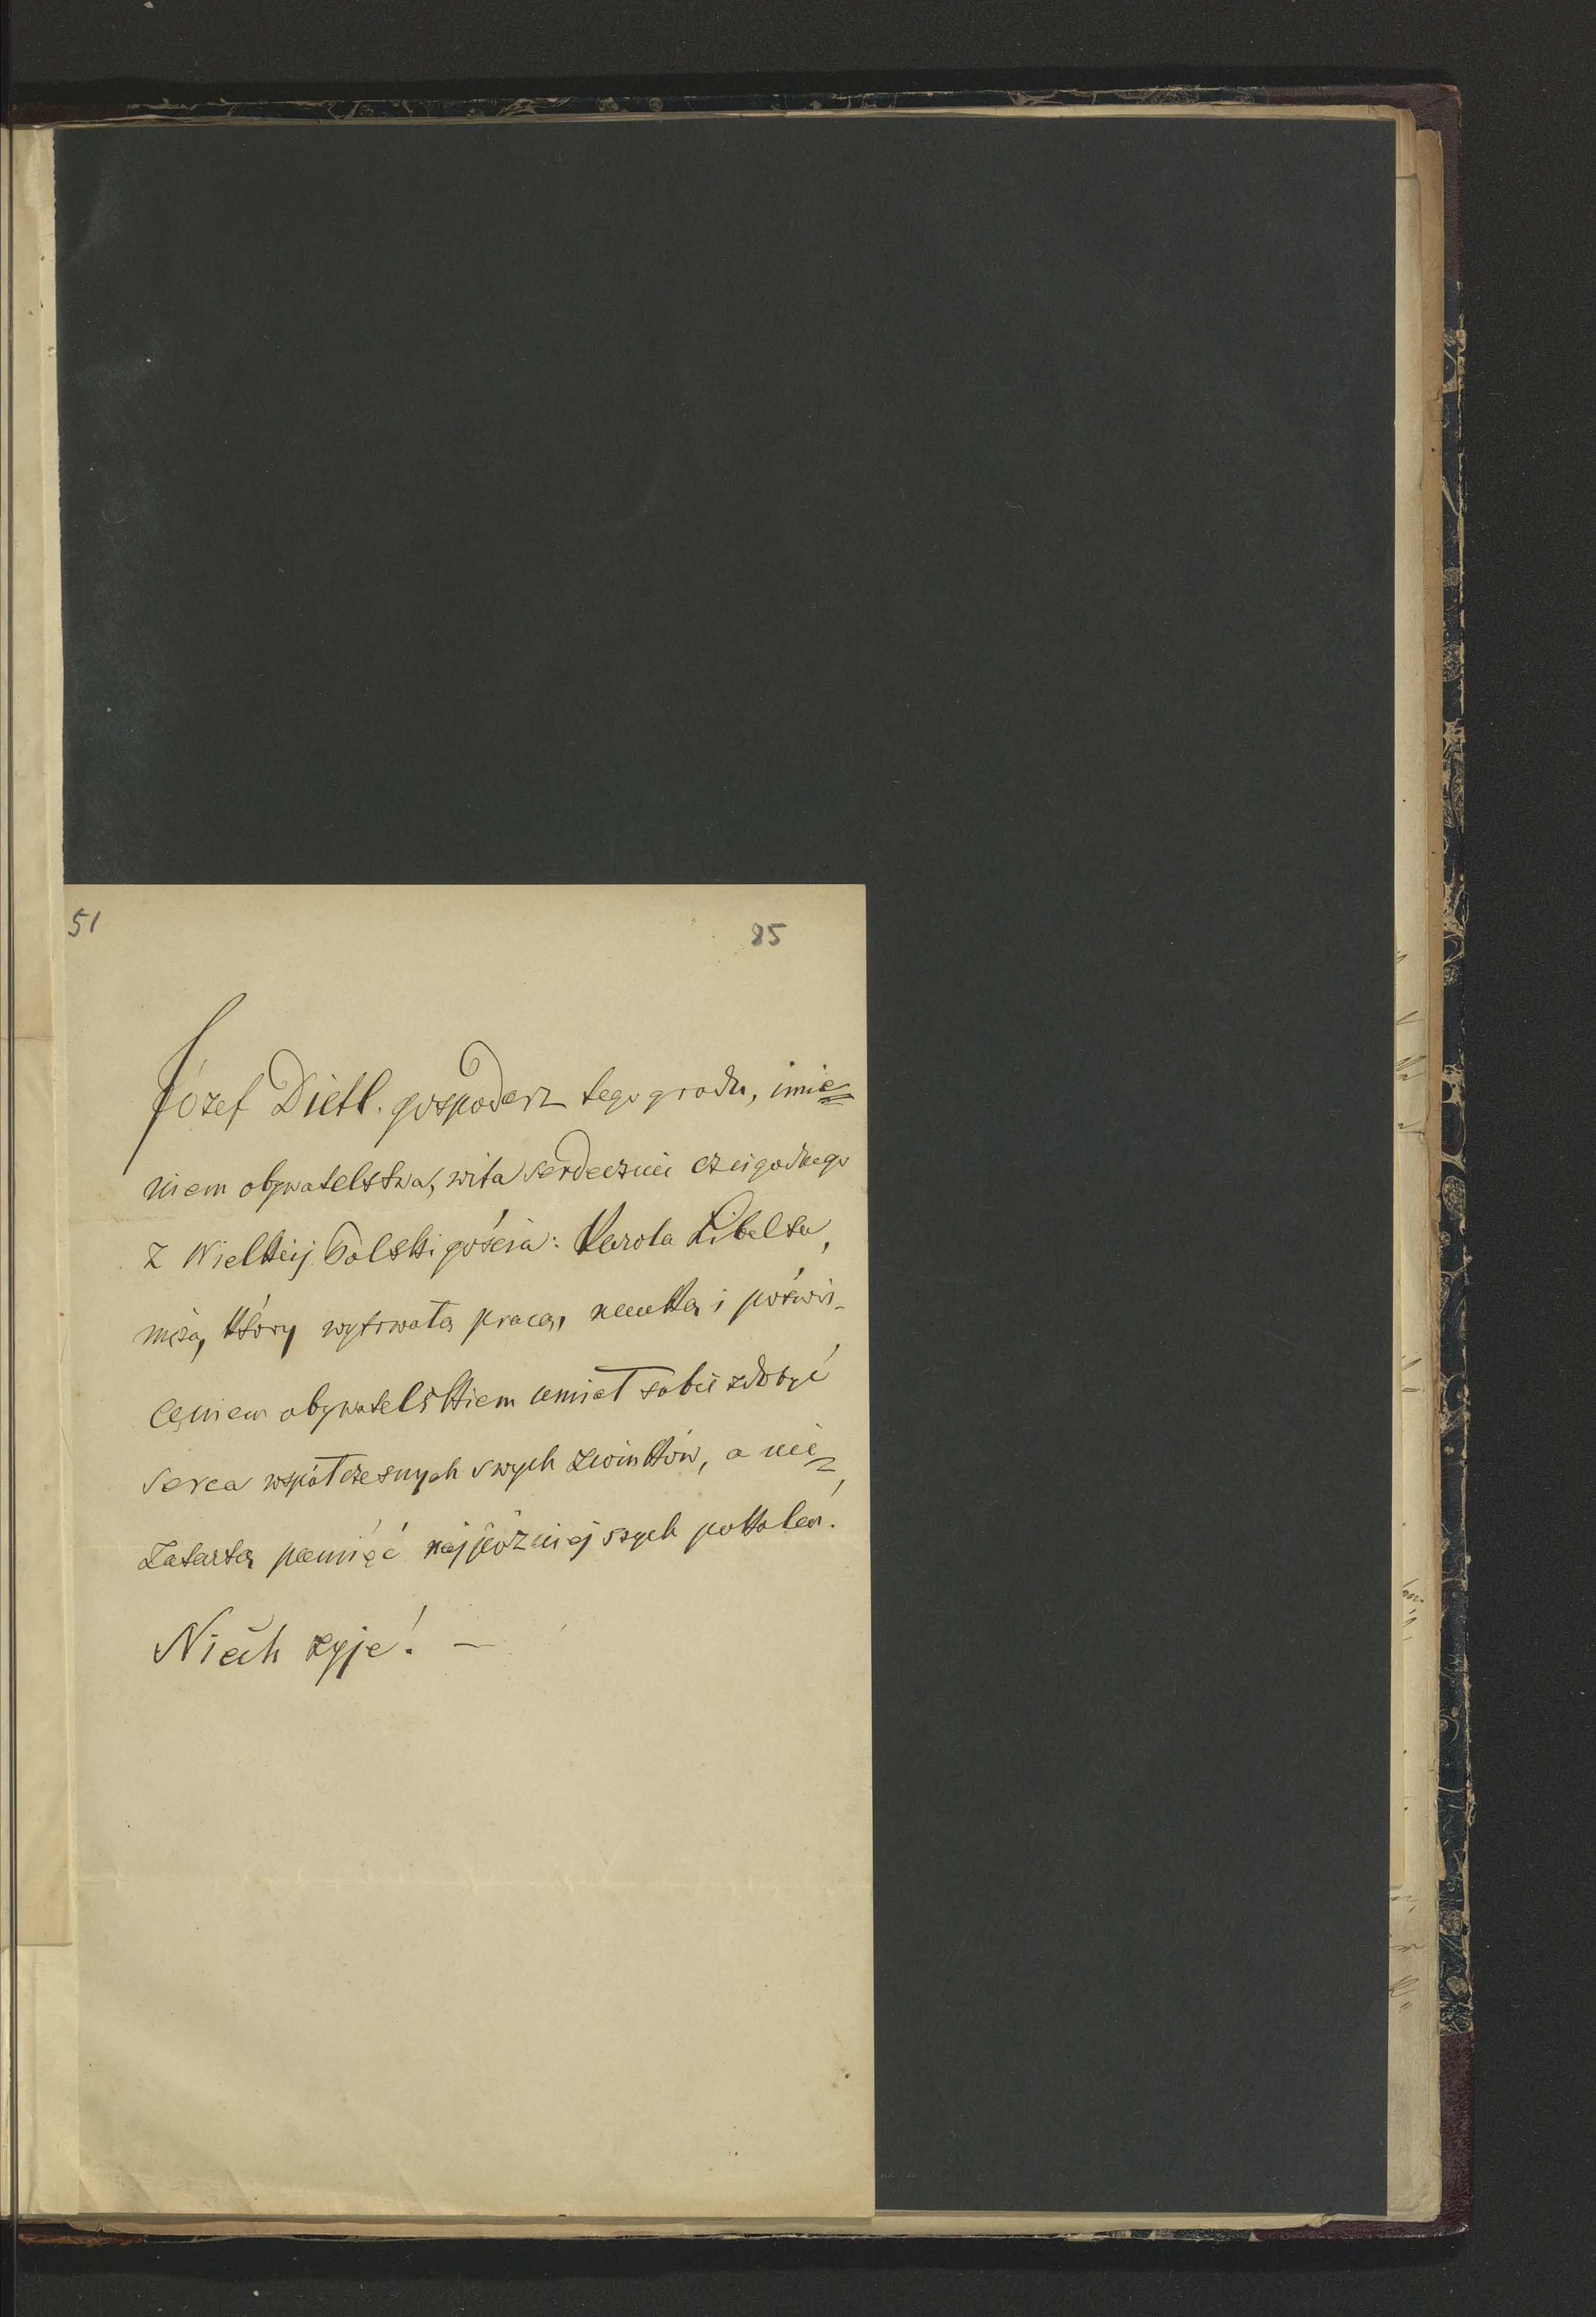 51
85
Józef Dietl. gospodarz tego grodu, imie=
niem obywatelstwa, wita serdecznie czcigodnego
z Wielkiej Polski gościa: Karola Libelta,
męża, który wytrwałą pracą, nauką i poświę-
ceniem obywatelskiem umiał sobie zdobyć
serca współczesnych swych ziomków, a nie=
zatartą pamięć najpóźniejszych pokoleń.
Niech żyje! —